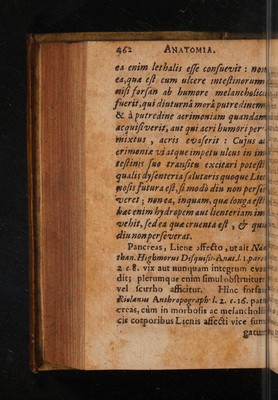 462 ANATOMIA.
ea enim lethalis esse consuevit: non
ea, quæ est cum ulcere intestinorum
nisi forsan ab humore melancholico
fuerit, qui diuturnâ morâ putredinem
& à putredine acrimoniam quandam
acquisiverit, aut qui acri humori per
mixtus, acris evaserit: Cujus ac
crimonia vi atque impetu ulcus in in
testinis suo transitu excitari potest:
qualis dysenteria salutaris quoque Lie
nosis futura est, si modò diu non perse
veret; non ea, inquam, quæ longa est:
hæc enim hydropem aut lienteriam in
vehit, sed ea quæ cruenta est, & quæ
diu non perseverat.
Pancreas, Liene affecto, ut ait Na
than. Highmorus Disquisit. Anat. l. 1. part.
2 c 8. vix aut nunquam integrum eva
dit; plerumque enim simul obstruitur
vel scirrho afficitur. Hinc forsan
Riolanus Anthropograph. l. 2. c. 16. pan
creas, cùm in morbosis ac melancholi
cis corporibus Lienis affecti vice fun
gatur